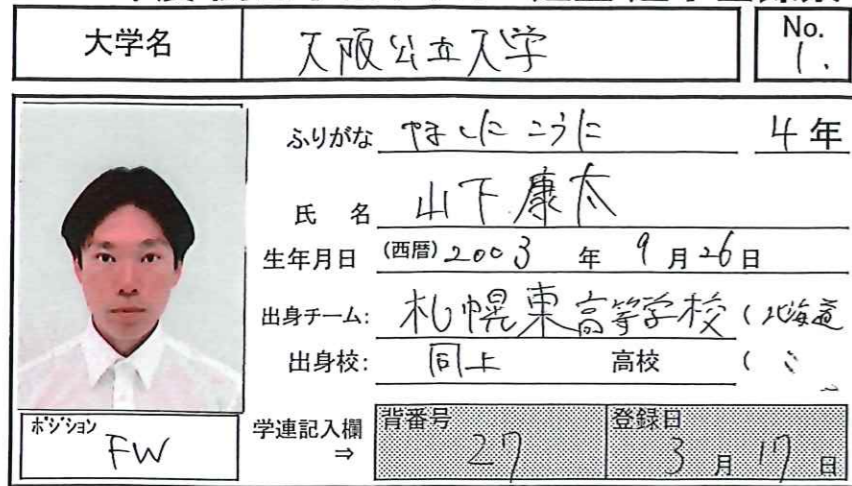 大学名 大阪公立大学 No. 1.
ふりがな やましたこうた 4年
氏 名 山下康太
生年月日 (西暦) 2003 年 9 月 26 日
出身チーム: 札幌東高等学校 (北海道
出身校: 同上 高校 ( 〃
ポジション FW
学連記入欄 ⇒ 背番号 27 登録日 3 月 17 日